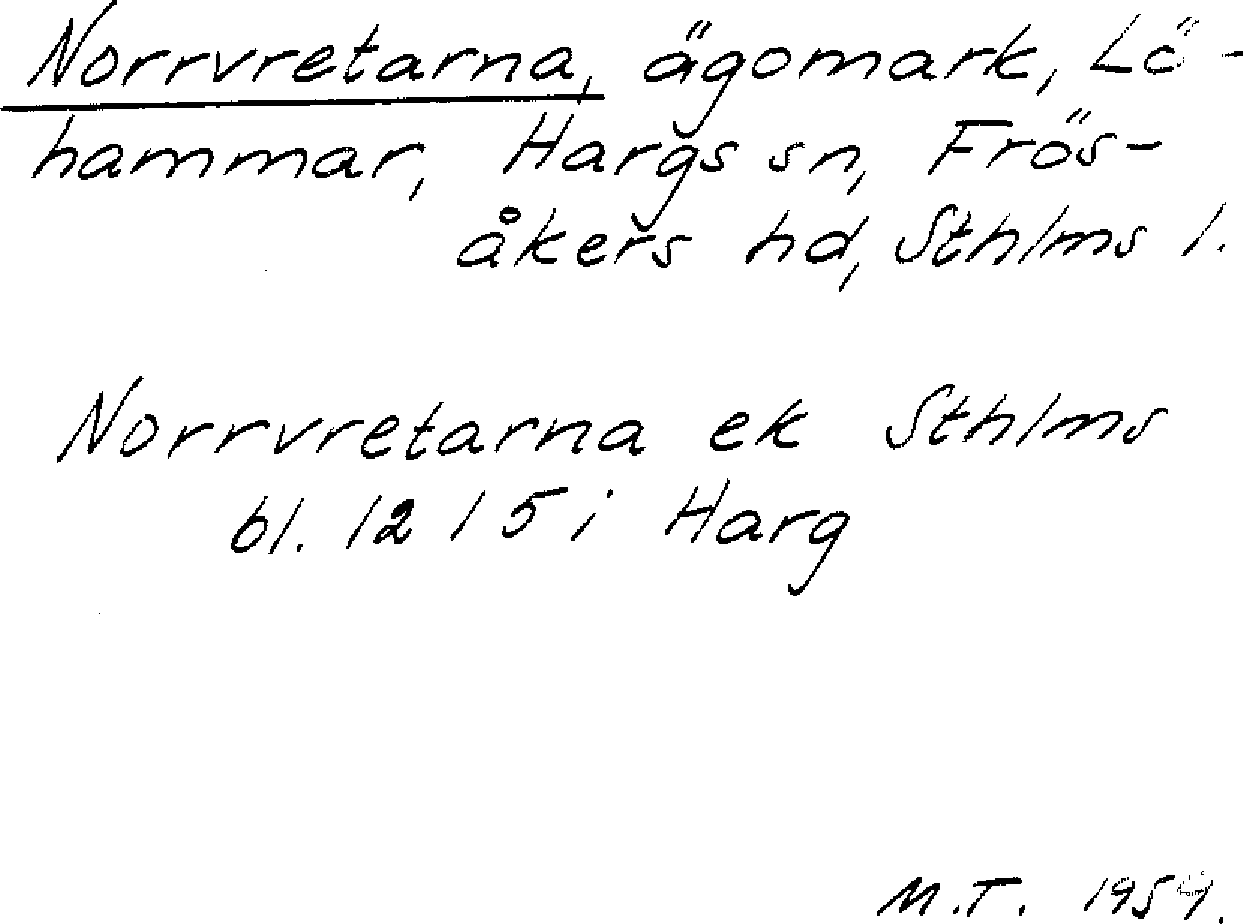 Norrvretarna, ägomark, Lö-
hammar, Hargs sn, Frös-
åkers hd, Sthlms l.
Norrvretarna ek Sthlms
bl. 12 15 i Harg
M.T. 1954.